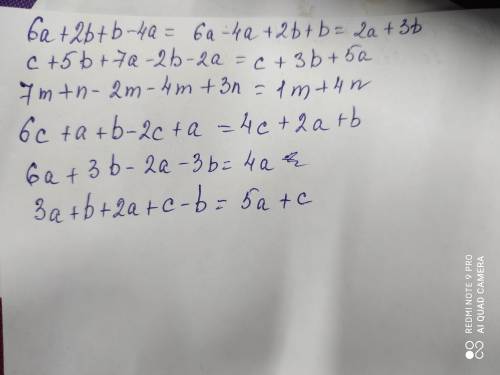 6a+2b+b-4a= 6a-4a+2b+b= 2a+3b
c+5b+7a-2b-2a=c+3b+5a
7m+n-2m-4m+3n=1m+4n
6c+a+b-2c+a=4c+2a+b
6a+3b-2a-3b=4a
3a+b+2a+c-b=5a+c
REDMI NOTE 9 PRO
AI QUAD CAMERA